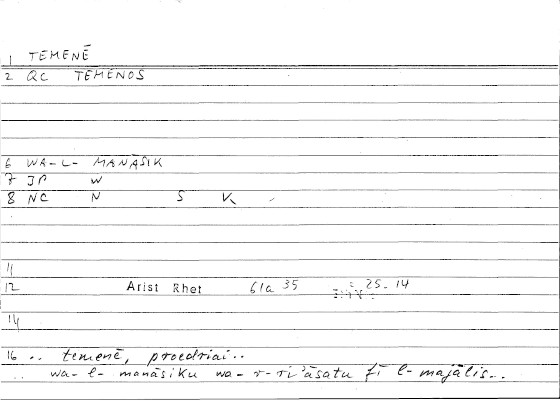 1 TEMENĒ
2 QC TEMENOS
6 WA-L- MANĀSIK
7 JP W
8 NC N S K
11
12 Arist Rhet 61a 35 25.14
14
16 .. temenē, proedriai..
.. wa-l- manāsiku wa-r-ri'āsatu fī l-majālis..